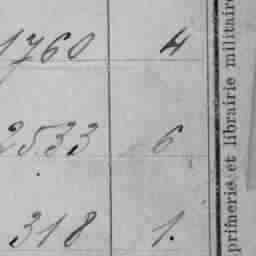 1760 4
2533 6
318 1.
primerie et librairie militaire